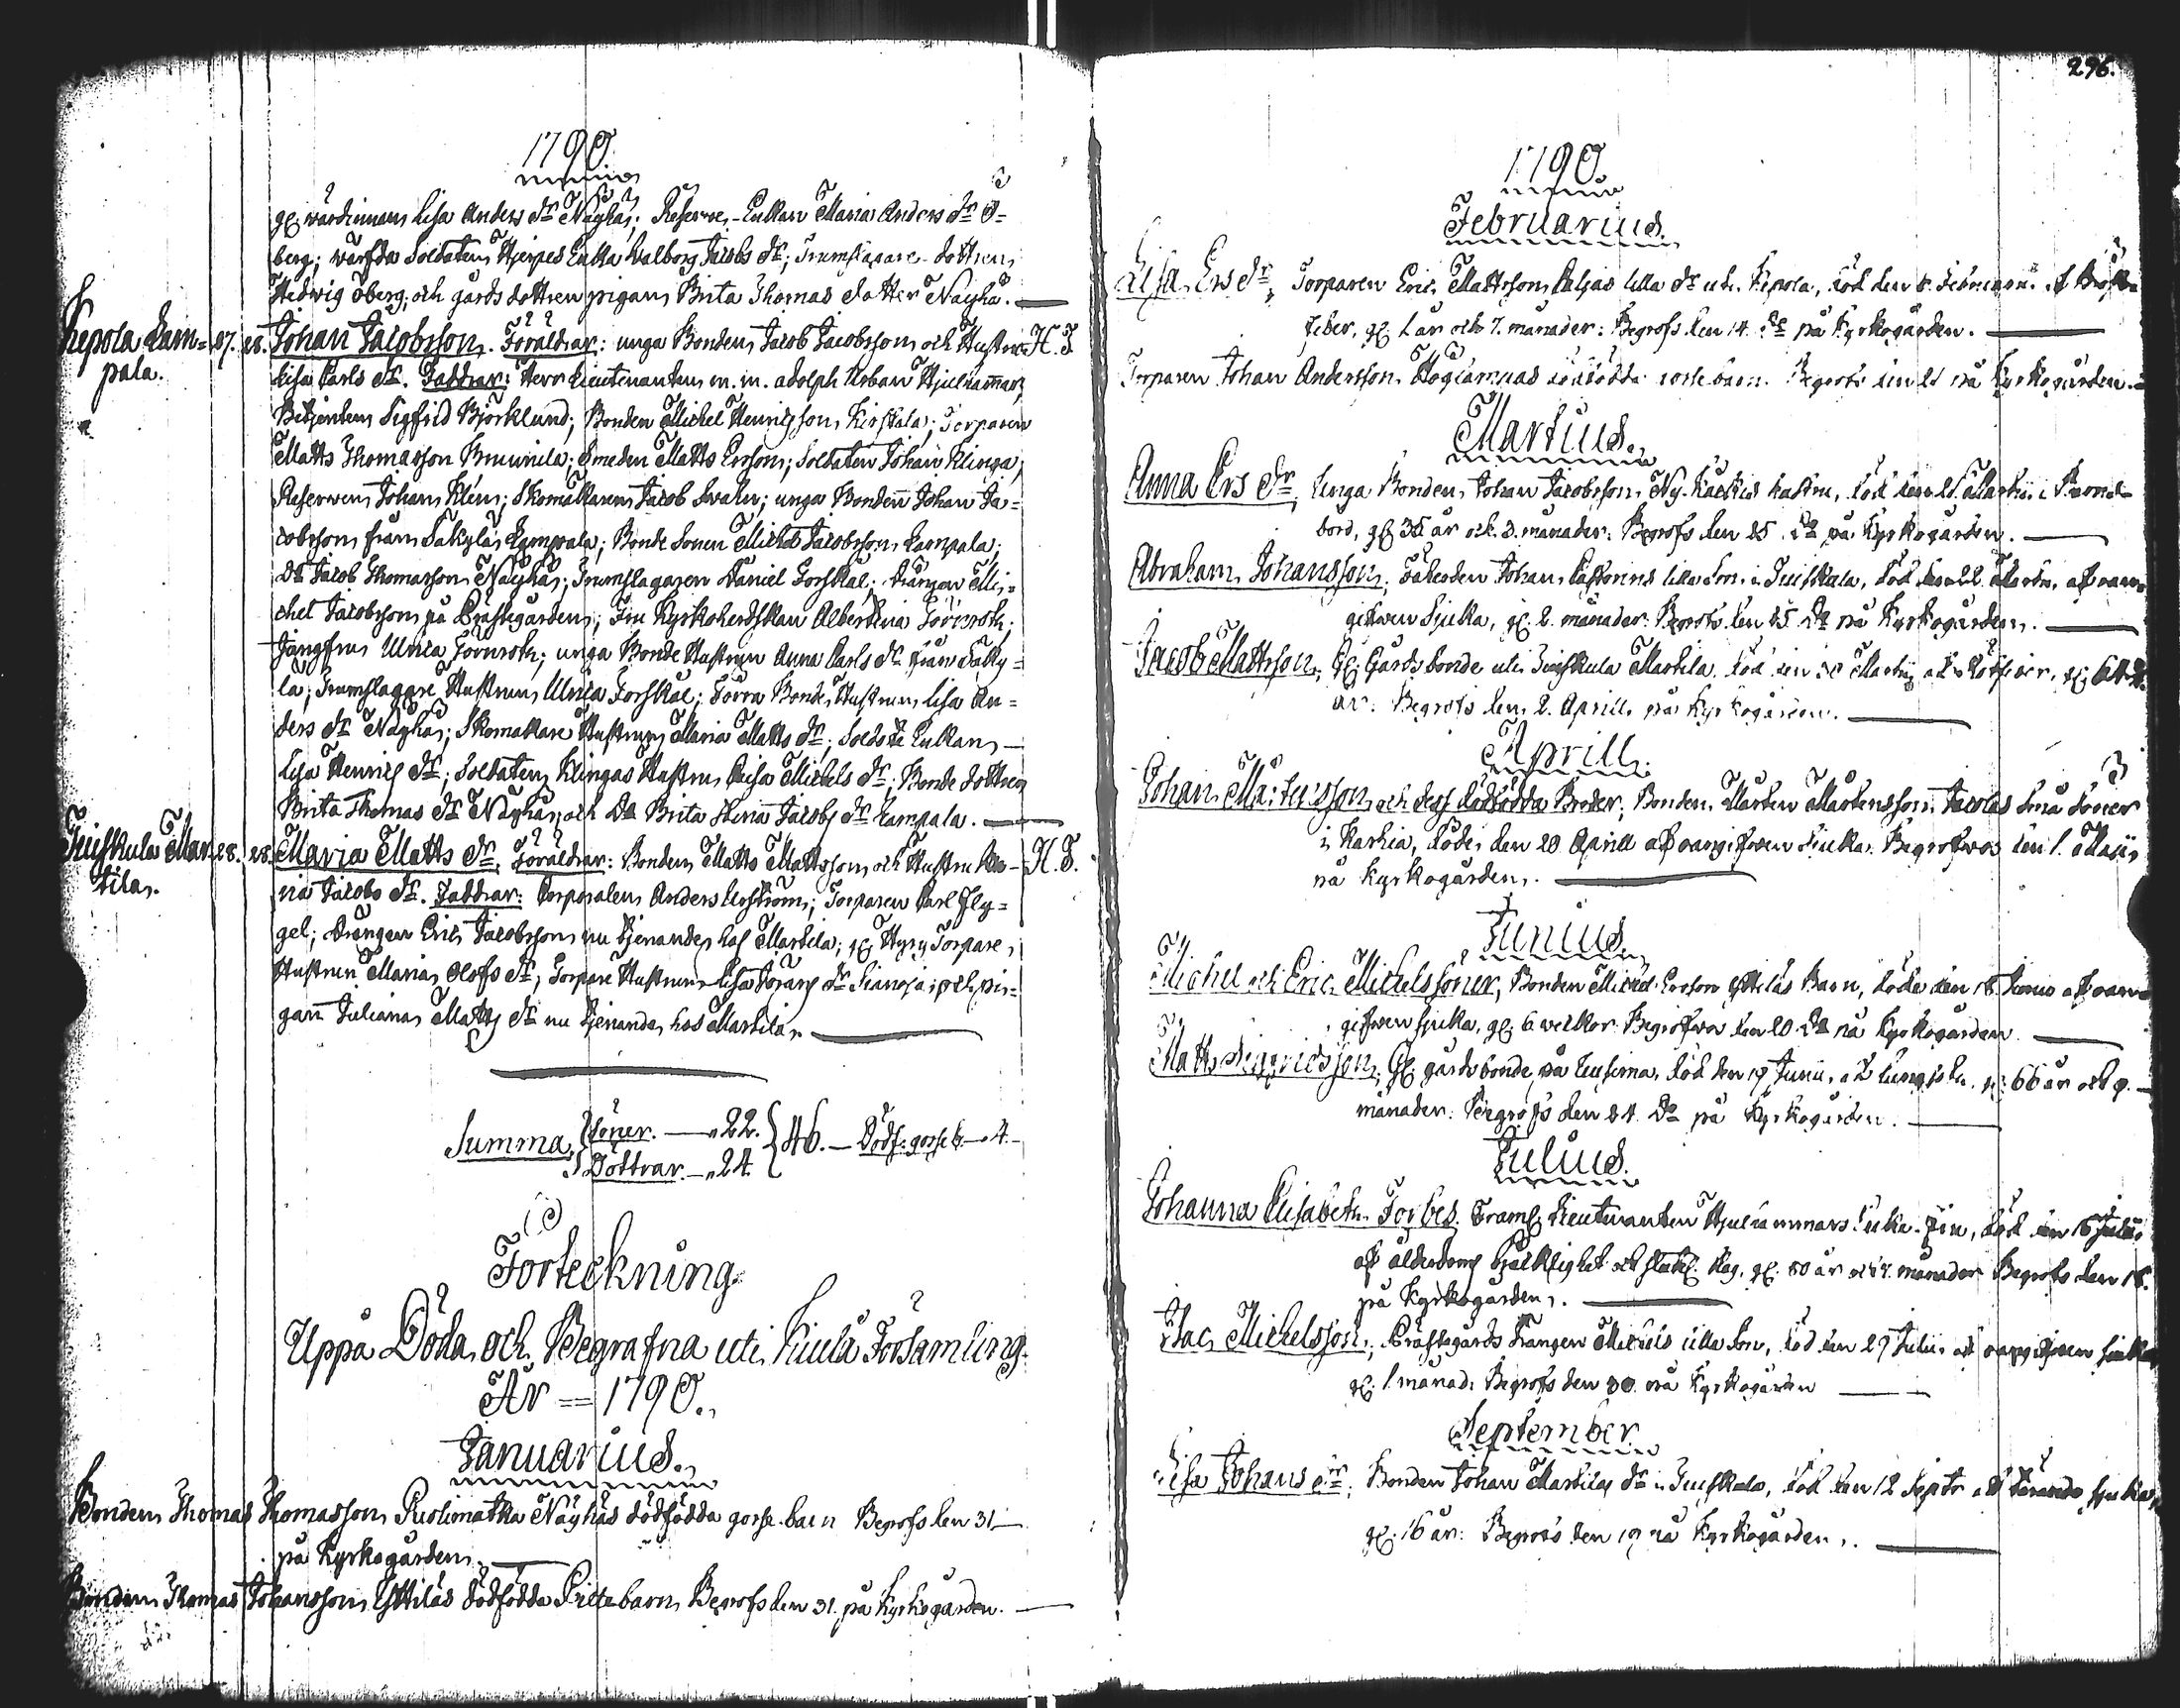 1790.
gl. värdinnan Lisa Anders dr Näyhä; Reserves-Enkan Maria Anders dr Ö=
berg; värfda Soldatens Hjerpes Enka Valborg Jacobs dr; Trumslagare-dottren
Hedvig Öberg; och gårds dottren pigan Brita Thomas dotter Näyhä.
Kepola Lam= 27. 28. Johan Jacobsson. Föräldrar: unga Bonden Jacob Jacobsson och Hustru H. F.
pala.
Lisa Carls dr. Faddrar: Herr Lieutenanten m. m. Adolph Urban Hjelmämar;
Betjenten Sigfrid Björklund; Bonden Michel Henricsson Kirstala; Torparen
Matts Thomasson; Smeden Matts Ersson; Soldaten Johan Klinga;
Reserven Johan Klen; Skomakaren Jacob Svahn; unga Bonden Johan Ja=
cobsson från Säkylä Lampala; Bonde Sonen Michel Jacobsson Lampala;
Do Jacob Thomasson Näyhä; Trumslagaren Daniel Forskål; Drängen Mi=
chel Jacobsson på Prästegården; Fru Kyrkoherdskan Albertina Törnroth;
Jungfru Ulrica Törnroth; unga Bonde Hustrun Anna Carls dr från Säky=
lä; Trumslagare Hustrun Ulrica Forskål; Förra Bonde Hustrun Lisa An=
ders dr Näyhä; Skomakare Hustrun Maria Matts dr; Solds Enkan
Lisa Henrics dr; Soldaten Klingas Hustru Caisa Michels dr; Bonde dottren
Brita Thomas dr Näyhä; och Do Brita Jacobs dr Lampala.
Tuiskula Mar= 28. 28. Maria Matts dr. Föräldrar: Bonden Matts Mattsson och Hustru An= H. F.
tila.
na Jacobs dr. Faddrar: Corporalen Anders; Torparen Carl Fly=
gel; Drängen Eric Jacobsson nu tjenandes hos Martila; gl. Hyry Torpare
Hustrun Maria Olofs dr; Torpare Hustrun Lisa Görans dr; och pi=
gan Juliana Matts dr nu tjenandes hos Martila.
Summa. Söner. — 22. 46. — Dödf: gosseb. — 4.
Döttrar. — 24.
Förteckning
Uppå Döda och Begrafna uti Kiula Församling
År = 1790.
Januarius.
Bonden Thomas Thomasson Puolimatka Näyhäs dödfödda gosse barn Begrofs den 31
på Kyrkogården.
Bonden Thomas Johansson Yttiläs dödfödda Piltebarn Begrofs den 31. på Kyrkogården.
296.
1790.
Februarius.
Lisa Ers dr, Torparen Eric Mattsson lilla dr uti Kepola, död den 8. Februarii af
feber, gl. 1 år och 7. månader: Begrofs den 14. do på Kyrkogården.
Torparen Johan Andersson dödfödda gosse barn. Begrofs den 21 på Kyrkogården.
Martius.
Anna Ers dr, Unga Bonden Johan Jacobsson Ny-hustru, död den Martii i Barns-
börd, gl. 35 år och 3. månader: Begrofs den 25. Do på Kyrkogården.
Abraham Johansson, Johan lilla Son i Tuiskula, död den 22. Martii, af oan=
gifven Sjuka, gl. 2. månader: Begrofs den 25 Do på Kyrkogården.
Jacob Mattsson, Gl. Gårds bonde uti Tuiskula Martila, död den Martii af Rötfeber, gl.
år: Begrofs den 2. Aprill på Kyrkogården.
Aprill.
Johan Mårtensson och dess dödfödda Broder, Bonden Mårten Mårtensson Jacolas Små Söner
i Karhia, döde den 20 Aprill af oangifven Sjuka. Begrofvos den 1. Maji
på Kyrkogården.
Junius.
Michel och Eric Michelssöner, Bonden Michel Ersson Yttiläs Barn, döde den 18. Junii af oan=
gifven sjuka, gl. 6 veckor. Begrofvos den 20 Do på Kyrkogården.
Matts Sigfridsson, Gl. gårdsbonde på, död den 19 Junii, af, gl. 66 år och 9.
månader: Begrofs den 24. Do på Kyrkogården.
Julius.
Johanna Elisabeth Forbes. Framl. Lieutenanten Hjelmämars Enke-Fru, död den 16 Julii
af ålderdoms bräcklighet och slag, gl. 80 år och månader Begrofs den 18.
på Kyrkogården.
Isac Michelsson, Prästegårds Drängen Michels lilla Son, död den 29 Julii af oangifven sjuka
gl. 1. månad: Begrofs den 30. på Kyrkogården
September.
Lisa Johans dr, Bonden Johan Martilas dr i Tuiskula, död den 12 Septr af sjuka,
gl. 16 år: Begrofs den 19 på Kyrkogården.